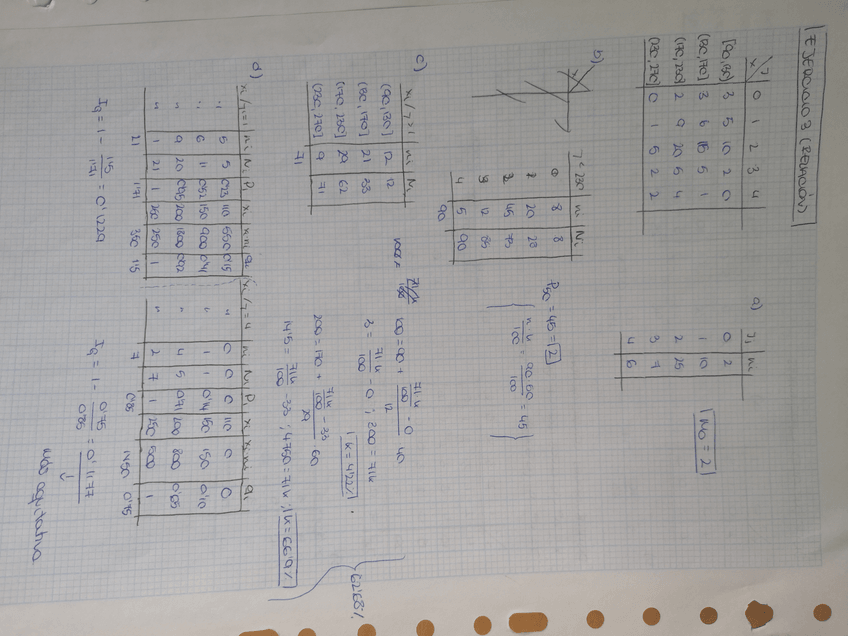 EJERCICIO 3 (RELACIÓN)
x\y 0 1 2 3 4
[90,130] 3 5 10 2 0
(130,170] 3 6 15 5 1
(170,230] 2 9 20 5 4
(230,270] 0 1 5 2 2
a) yi ni
0 2
1 10
2 25
3 7
4 6
Mo = 2
b)
y<230 ni Ni
0 8 8
1 20 28
2 45 73
3 12 85
4 5 90
90
P50 = 45 = 2
n·k/100 = 90·50/100 = 45
c) xi/y=1 ni Ni
(90,130] 12 12
(130,170] 21 33
(170,230] 29 62
(230,270] 9 71
71
100 = 90 + (71k/100 - 0)/12 · 40
3 = 71k/100 - 0 ; 300 = 71k
k = 4'22%
200 = 170 + (71k/100 - 33)/29 · 60
14'5 = 71k/100 - 33 ; 4750 = 71k ; k = 66'9%
62'68%
d) xi/y=1 ni Ni Pi xi xi·ni qi
" 5 5 0'23 110 550 0'15
" 6 11 0'52 150 900 0'41
" 9 20 0'95 200 1800 0'92
" 1 21 1 250 250 1
21 1'71 350 1'15
Ig = 1 - 1'15/1'71 = 0'1229
xi/y=4 ni Ni Pi xi xi·ni qi
" 0 0 0 110 0 0
" 1 1 0'14 150 150 0'10
" 4 5 0'71 200 800 0'65
" 2 7 1 250 500 1
7 0'85 1450 0'75
Ig = 1 - 0'75/0'85 = 0'1177
↓
más equitativa